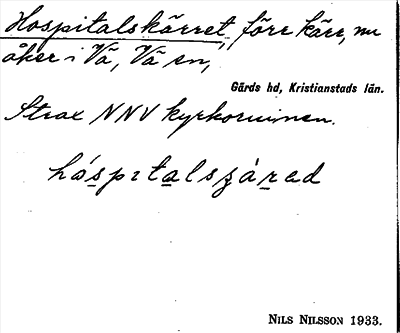 Hospitalskärret, förr kärr, nu
åker i Vä, Vä sn,
Gärds hd, Kristianstads län.
Strax NNV kyrkoruinen.
hóspıtalsʒárəd
NILS NILSSON 1933.